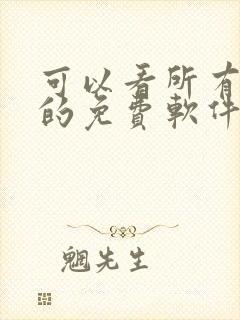 可以看所有
的免費軟件
魍先生